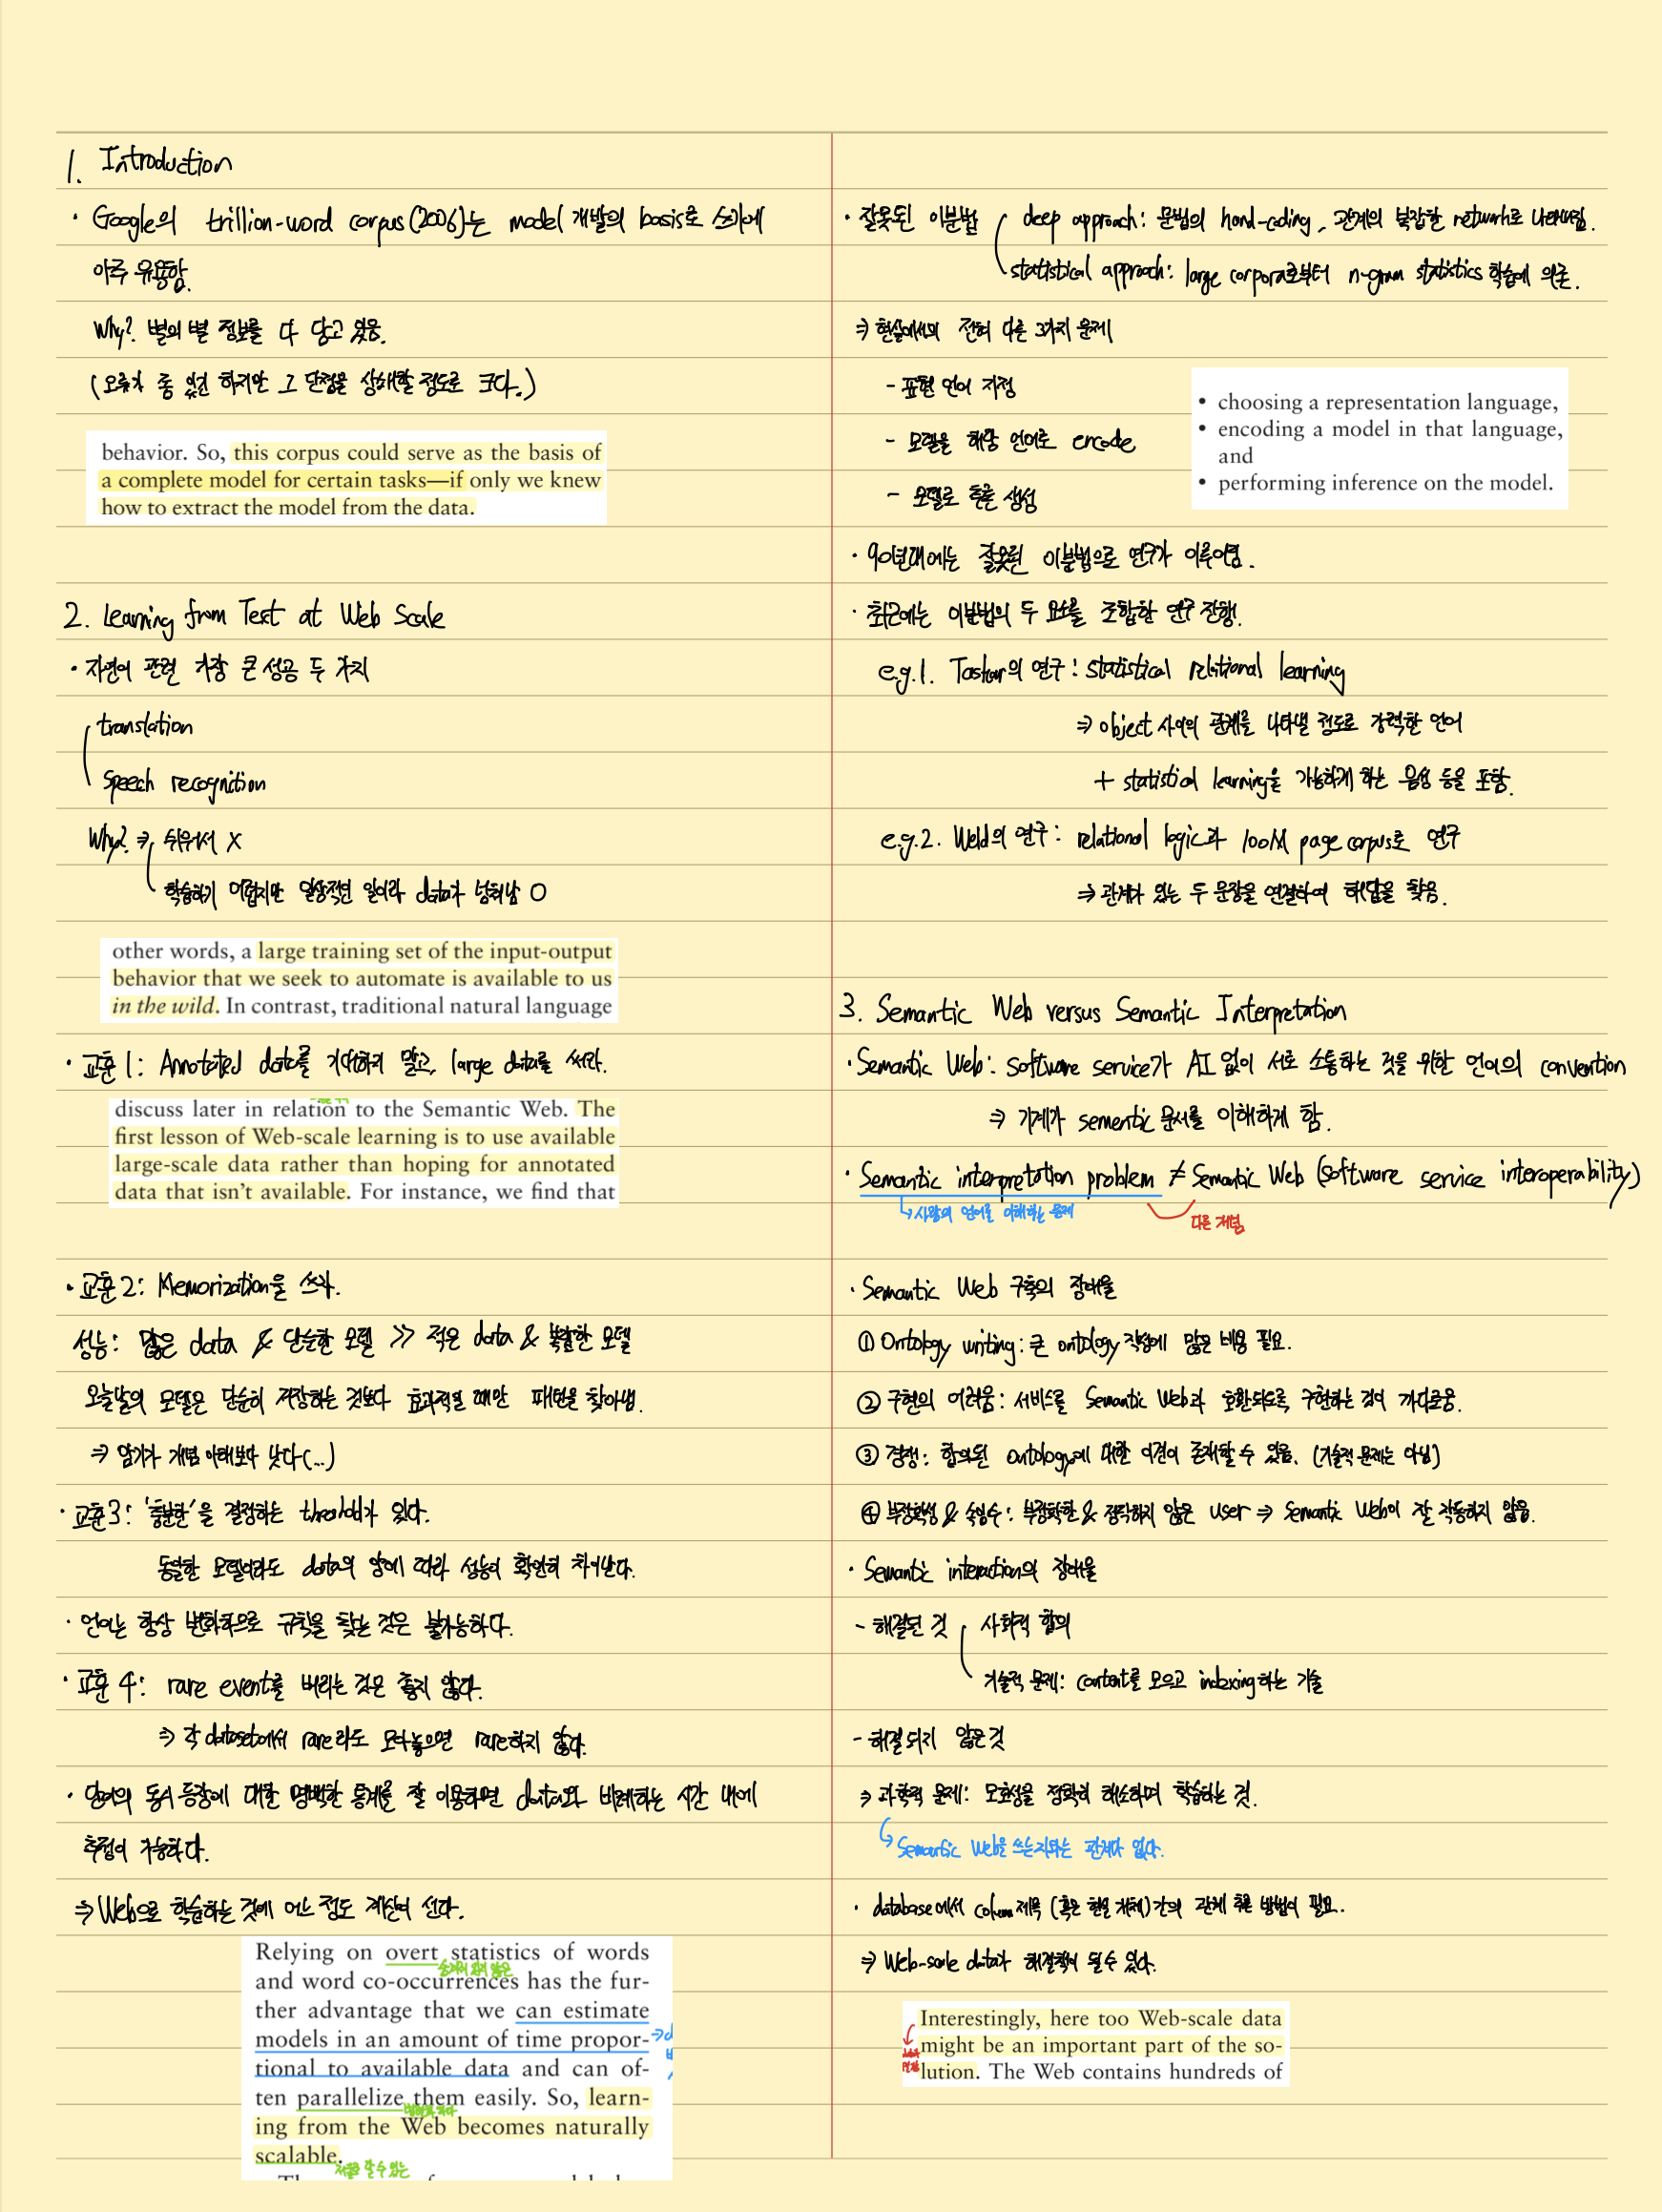 1. Introduction
· Google의 trillion-word corpus(2006)는 model 개발의 basis로 쓰기에
아주 유용함.
Why? 별의 별 정보를 다 담고 있음.
(오류가 좀 있긴 하지만 그 단점을 상쇄할 정도로 크다.)
behavior. So, this corpus could serve as the basis of
a complete model for certain tasks—if only we knew
how to extract the model from the data.
2. Learning from Text at Web Scale
· 자연어 관련 가장 큰 성공 두 가지
translation
speech recognition
Why? ⇒ 쉬워서 X
학습하기 어렵지만 일상적인 일이라 data가 넘쳐남 O
other words, a large training set of the input-output
behavior that we seek to automate is available to us
in the wild. In contrast, traditional natural language
· 교훈 1: Annotated data를 기대하지 말고, large data를 써라.
discuss later in relation to the Semantic Web. The
first lesson of Web-scale learning is to use available
large-scale data rather than hoping for annotated
data that isn't available. For instance, we find that
· 교훈 2: Memorization을 쓰라.
성능: 많은 data & 단순한 모델 ≫ 적은 data & 복잡한 모델
오늘날의 모델은 단순히 저장하는 것보다 효과적일 때만 패턴을 찾아냄.
⇒ 암기가 개념 이해보다 낫다(...)
· 교훈3: '충분한'을 결정하는 threshold가 있다.
동일한 모델이라도 data의 양에 따라 성능이 확연히 차이난다.
· 언어는 항상 변화하므로 규칙을 찾는 것은 불가능하다.
· 교훈 4: rare event를 버리는 것은 좋지 않다.
⇒ 각 dataset에서 rare라도 모아놓으면 rare하지 않다.
· 단어의 동시 등장에 대한 명백한 통계를 잘 이용하면 data와 비례하는 시간 내에
추정이 가능하다.
⇒ Web으로 학습하는 것에 어느 정도 계산이 선다.
Relying on overt statistics of words
숨겨져 있지 않은
and word co-occurrences has the fur-
ther advantage that we can estimate
models in an amount of time propor-
tional to available data and can of-
ten parallelize them easily. So, learn-
병렬화 하다
ing from the Web becomes naturally
scalable.
· 잘못된 이분법
deep approach: 문법의 hand-coding, 관계의 복잡한 network로 나타내짐.
statistical approach: large corpora로부터 n-gram statistics 학습에 의존.
⇒ 현실에서의 전혀 다른 3가지 문제
- 표현 언어 지정
- 모델을 해당 언어로 encode
- 모델로 추론 생성
• choosing a representation language,
• encoding a model in that language,
and
• performing inference on the model.
· 90년대에는 잘못된 이분법으로 연구가 이루어짐.
· 최근에는 이분법의 두 요소를 조합한 연구 진행.
e.g.1. Taskar의 연구: statistical relational learning
⇒ object 사이의 관계를 나타낼 정도로 강력한 언어
+ statistical learning을 가능하게 하는 음성 등을 포함.
e.g.2. Weld의 연구: relational logic과 100M page corpus로 연구
⇒ 관계가 있는 두 문장을 연결하여 해답을 찾음.
3. Semantic Web versus Semantic Interpretation
· Semantic Web: software service가 AI 없이 서로 소통하는 것을 위한 언어의 convention
⇒ 기계가 sementic 문서를 이해하게 함.
· Semantic interpretation problem ≠ Semantic Web (software service interoperability)
↳ 사람의 언어를 이해하는 문제
다른 개념
· Semantic Web 구축의 장애물
① Ontology writing: 큰 ontology 작성에 많은 비용 필요.
② 구현의 어려움: 서비스를 Semantic Web과 호환되도록 구현하는 것이 까다로움.
③ 경쟁: 합의된 ontology에 대한 이견이 존재할 수 있음. (기술적 문제는 아님)
④ 부정확성 & 속임수: 부정확한 & 정직하지 않은 user ⇒ Semantic Web이 잘 작동하지 않음.
· Semantic interaction의 장애물
- 해결된 것
사회적 합의
기술적 문제: content를 모으고 indexing하는 기술
- 해결되지 않은 것
⇒ 과학적 문제: 모호성을 정확히 해소하며 학습하는 것.
↳ Semantic Web을 쓰는지와는 관계가 없다.
· database에서 column 제목 (혹은 현실 개체)간의 관계 추론 방법이 필요.
⇒ Web-scale data가 해결책이 될 수 있다.
Interestingly, here too Web-scale data
might be an important part of the so-
lution. The Web contains hundreds of